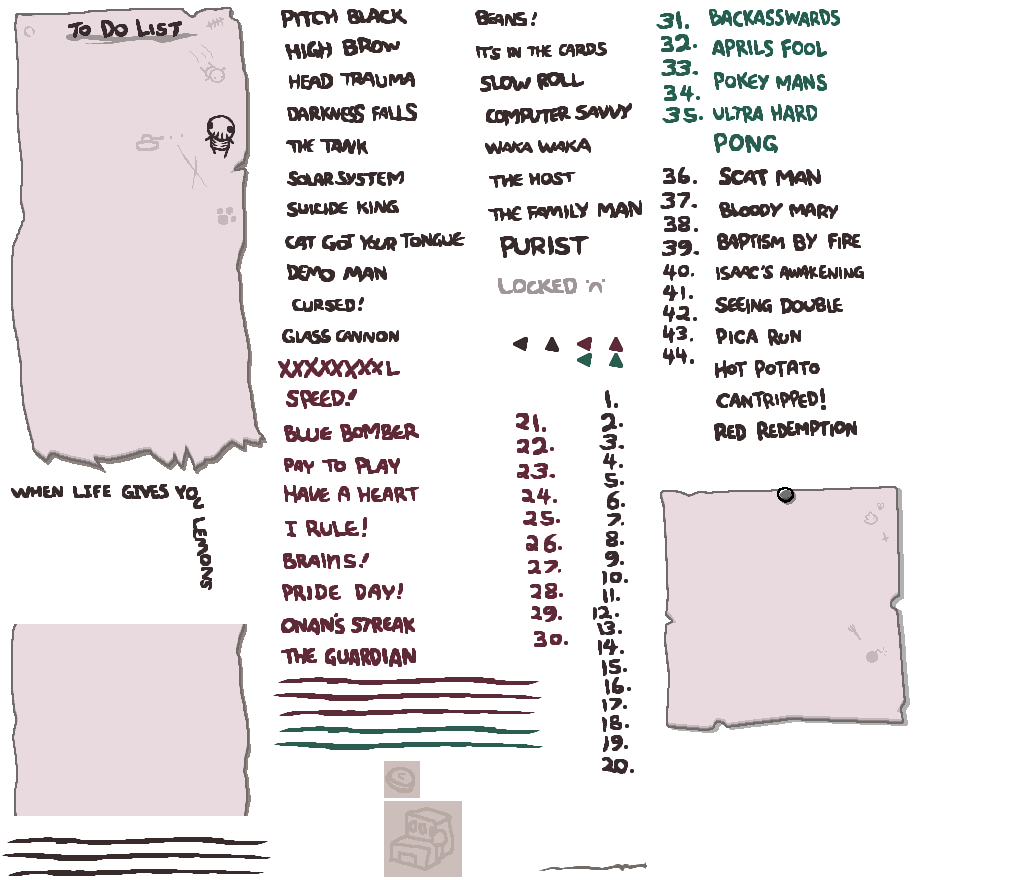 TO DO LIST
WHEN LIFE GIVES YOU LEMONS
PITCH BLACK
HIGH BROW
HEAD TRAUMA
DARKNESS FALLS
THE TANK
SOLAR SYSTEM
SUICIDE KING
CAT GOT YOUR TONGUE
DEMO MAN
CURSED!
GLASS CANNON
XXXXXXXXL
SPEED!
BLUE BOMBER
PAY TO PLAY
HAVE A HEART
I RULE!
BRAINS!
PRIDE DAY!
ONAN'S STREAK
THE GUARDIAN
BEANS!
IT'S IN THE CARDS
SLOW ROLL
COMPUTER SAVVY
WAKA WAKA
THE HOST
THE FAMILY MAN
PURIST
LOCKED 'n'
21.
22.
23.
24.
25.
26.
27.
28.
29.
30.
1.
2.
3.
4.
5.
6.
7.
8.
9.
10.
11.
12.
13.
14.
15.
16.
17.
18.
19.
20.
31.
32.
33.
34.
35.
36.
37.
38.
39.
40.
41.
42.
43.
44.
BACKASSWARDS
APRILS FOOL
POKEY MANS
ULTRA HARD
PONG
SCAT MAN
BLOODY MARY
BAPTISM BY FIRE
ISAAC'S AWAKENING
SEEING DOUBLE
PICA RUN
HOT POTATO
CANTRIPPED!
RED REDEMPTION